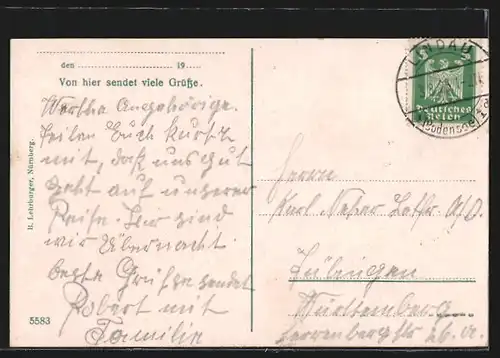 den 19
Von hier sendet viele Grüße.
Werthe Angehörige.
Teilen Euch kurz
mit, daß uns gut
geht auf unserer
Reise. Hier sind
wir Übernacht
beste Grüße sendet
Robert mit
Familie
B. Lehrburger, Nürnberg.
5583
LINDAU
(Bodensee)
Deutsches
Reich
Herrn
Karl
Tübingen
Württemberg
Herrenbergstr